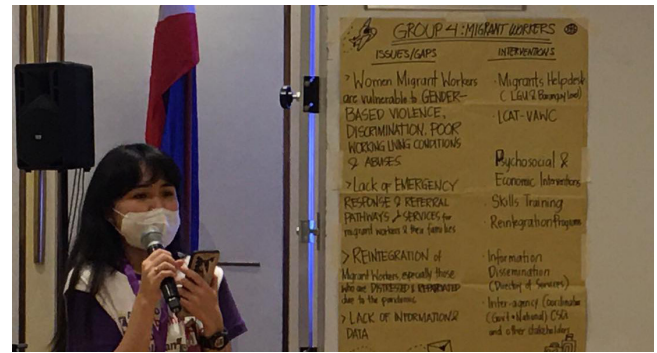 GROUP 4: MIGRANT WORKERS
ISSUES/GAPS
> Women Migrant Workers
are vulnerable to GENDER-
BASED VIOLENCE,
DISCRIMINATION, POOR
WORKING LIVING CONDITIONS
& ABUSES
> Lack of EMERGENCY
RESPONSE & REFERRAL
PATHWAYS & SERVICES for
migrant workers & their families
> REINTEGRATION of
Migrant Workers especially those
who are DISTRESSED & REPATRIATED
due to the pandemic
> LACK OF INFORMATION &
DATA
INTERVENTIONS
· Migrants Helpdesk
( LGU & Barangay level)
· LCAT-VAWC
Psychosocial &
Economic Interventions
· Skills Training
· Reintegration Programs
· Information
Dissemination
(Directory of Services)
· Inter-agency Coordination
(Govt + National) CSOs
and other stakeholders